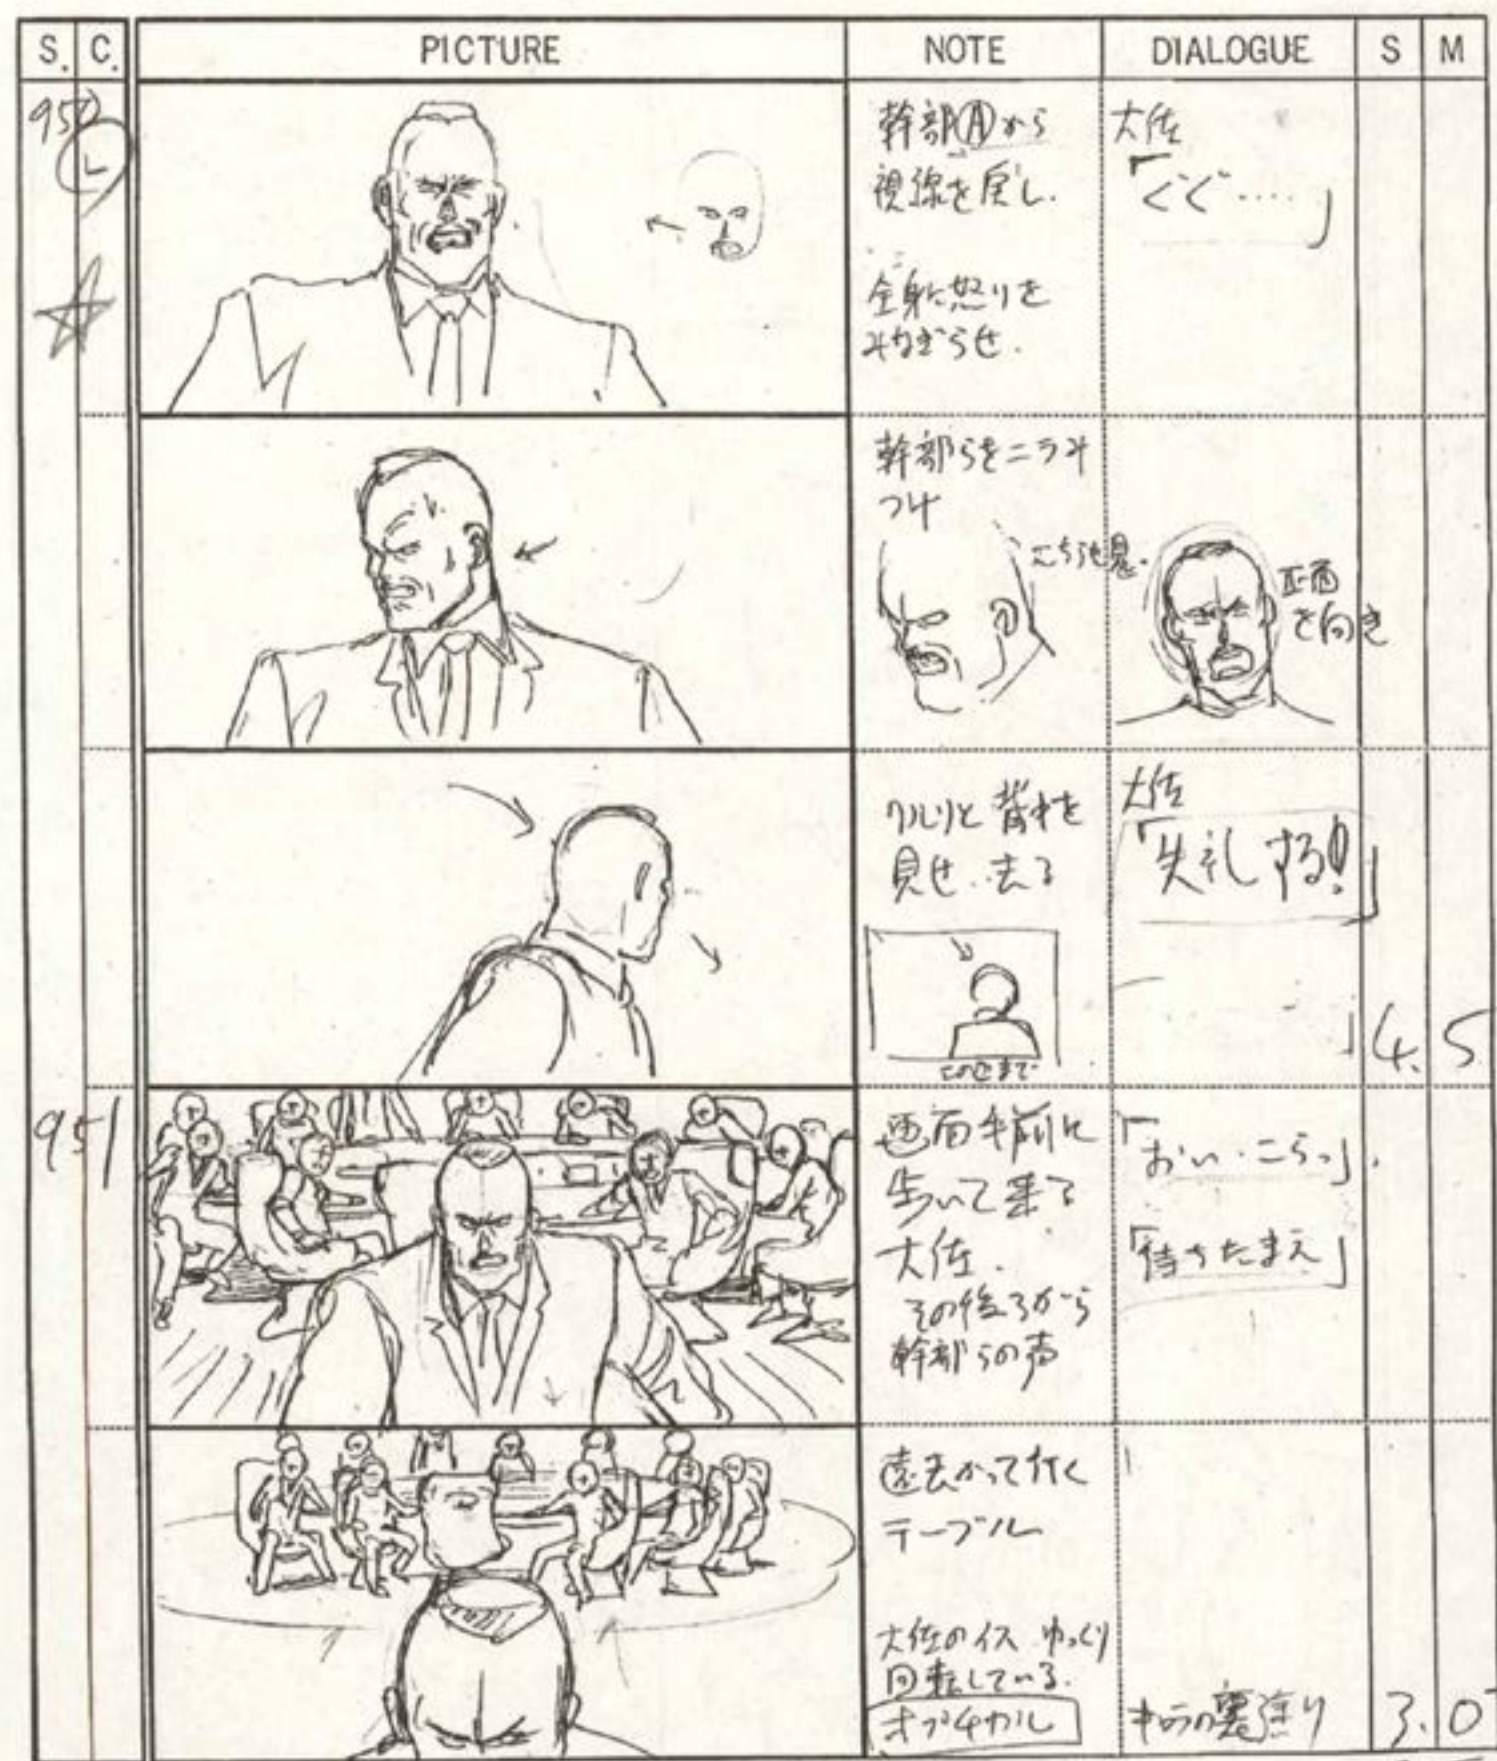 S. C. PICTURE NOTE DIALOGUE S M
950
L
幹部Ⓐから
視線を戻し.
全身に怒りを
みなぎらせ.
大佐
「ぐぐ‥‥」
幹部らをニラみ
つけ
こちらを見.
正面
を向き
クルリと背中を
見せ、去る
この位まで
大佐
「失礼する!」
4.5
951
画面手前に
歩いて来る
大佐.
その後ろから
幹部らの声
「おい・こらっ」.
「待ちたまえ」
遠去かって行く
テーブル
大佐のイス ゆっくり
回転している.
オプチカル
裏塗り
3.0